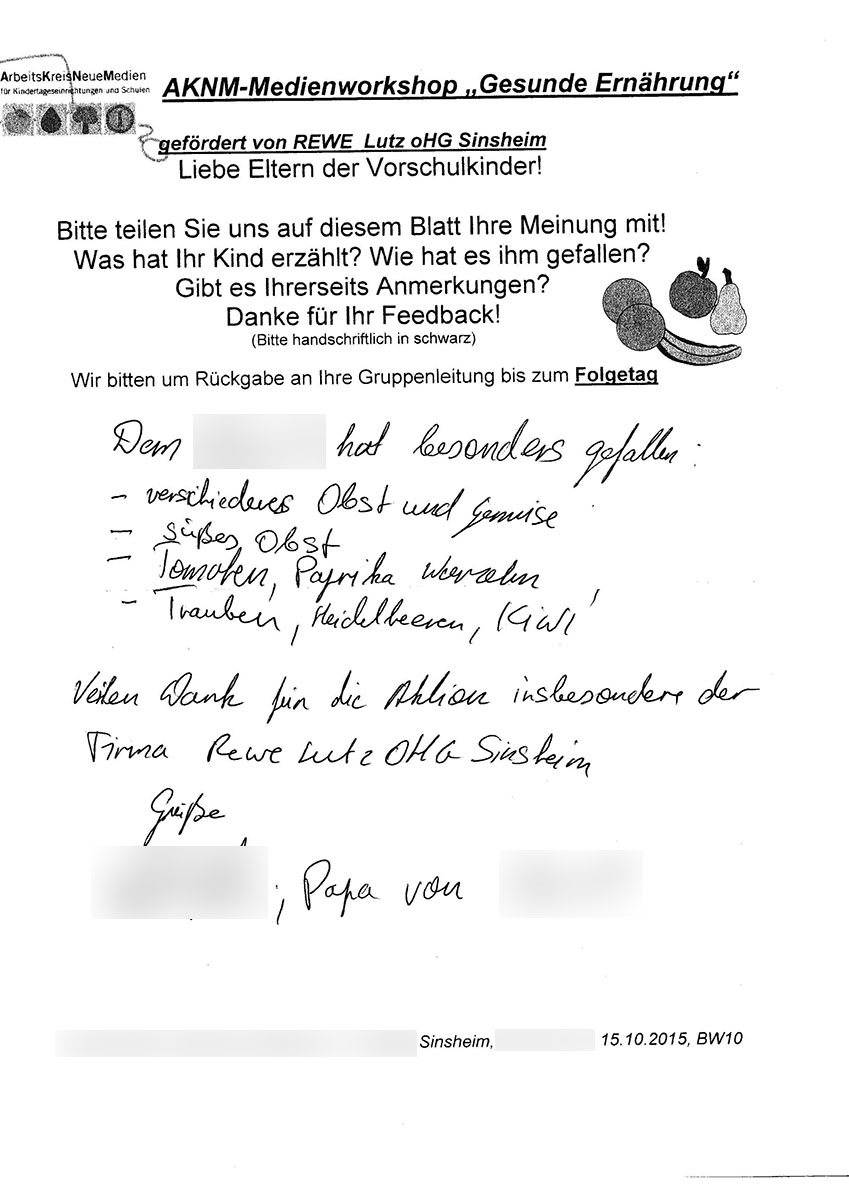 ArbeitsKreisNeueMedien
für Kindertageseinrichtungen und Schulen
AKNM-Medienworkshop „Gesunde Ernährung“
gefördert von REWE Lutz oHG Sinsheim
Liebe Eltern der Vorschulkinder!
Bitte teilen Sie uns auf diesem Blatt Ihre Meinung mit!
Was hat Ihr Kind erzählt? Wie hat es ihm gefallen?
Gibt es Ihrerseits Anmerkungen?
Danke für Ihr Feedback!
(Bitte handschriftlich in schwarz)
Wir bitten um Rückgabe an Ihre Gruppenleitung bis zum Folgetag
Dem hat besonders gefallen:
- verschiedenes Obst und Gemüse
- süßes Obst
- Tomaten, Paprika
- Trauben, Heidelbeeren, Kiwi
Vielen Dank für die Aktion insbesondere der
Firma Rewe Lutz OHG Sinsheim
Grüße
, Papa von
Sinsheim, 15.10.2015, BW10